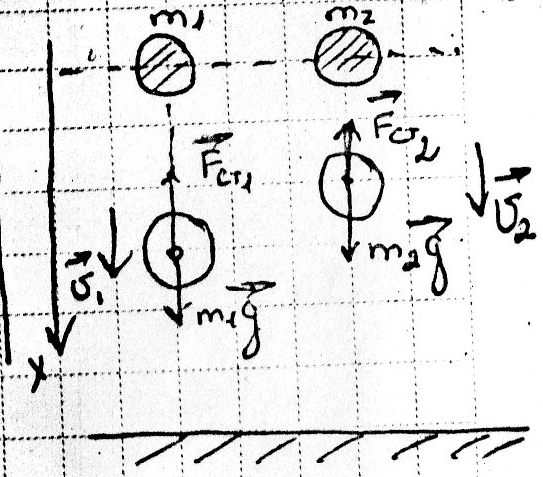 m₁ m₂
F⃗ст₁ F⃗ст₂
v⃗₁ m₁g⃗ m₂g⃗ v⃗₂
x